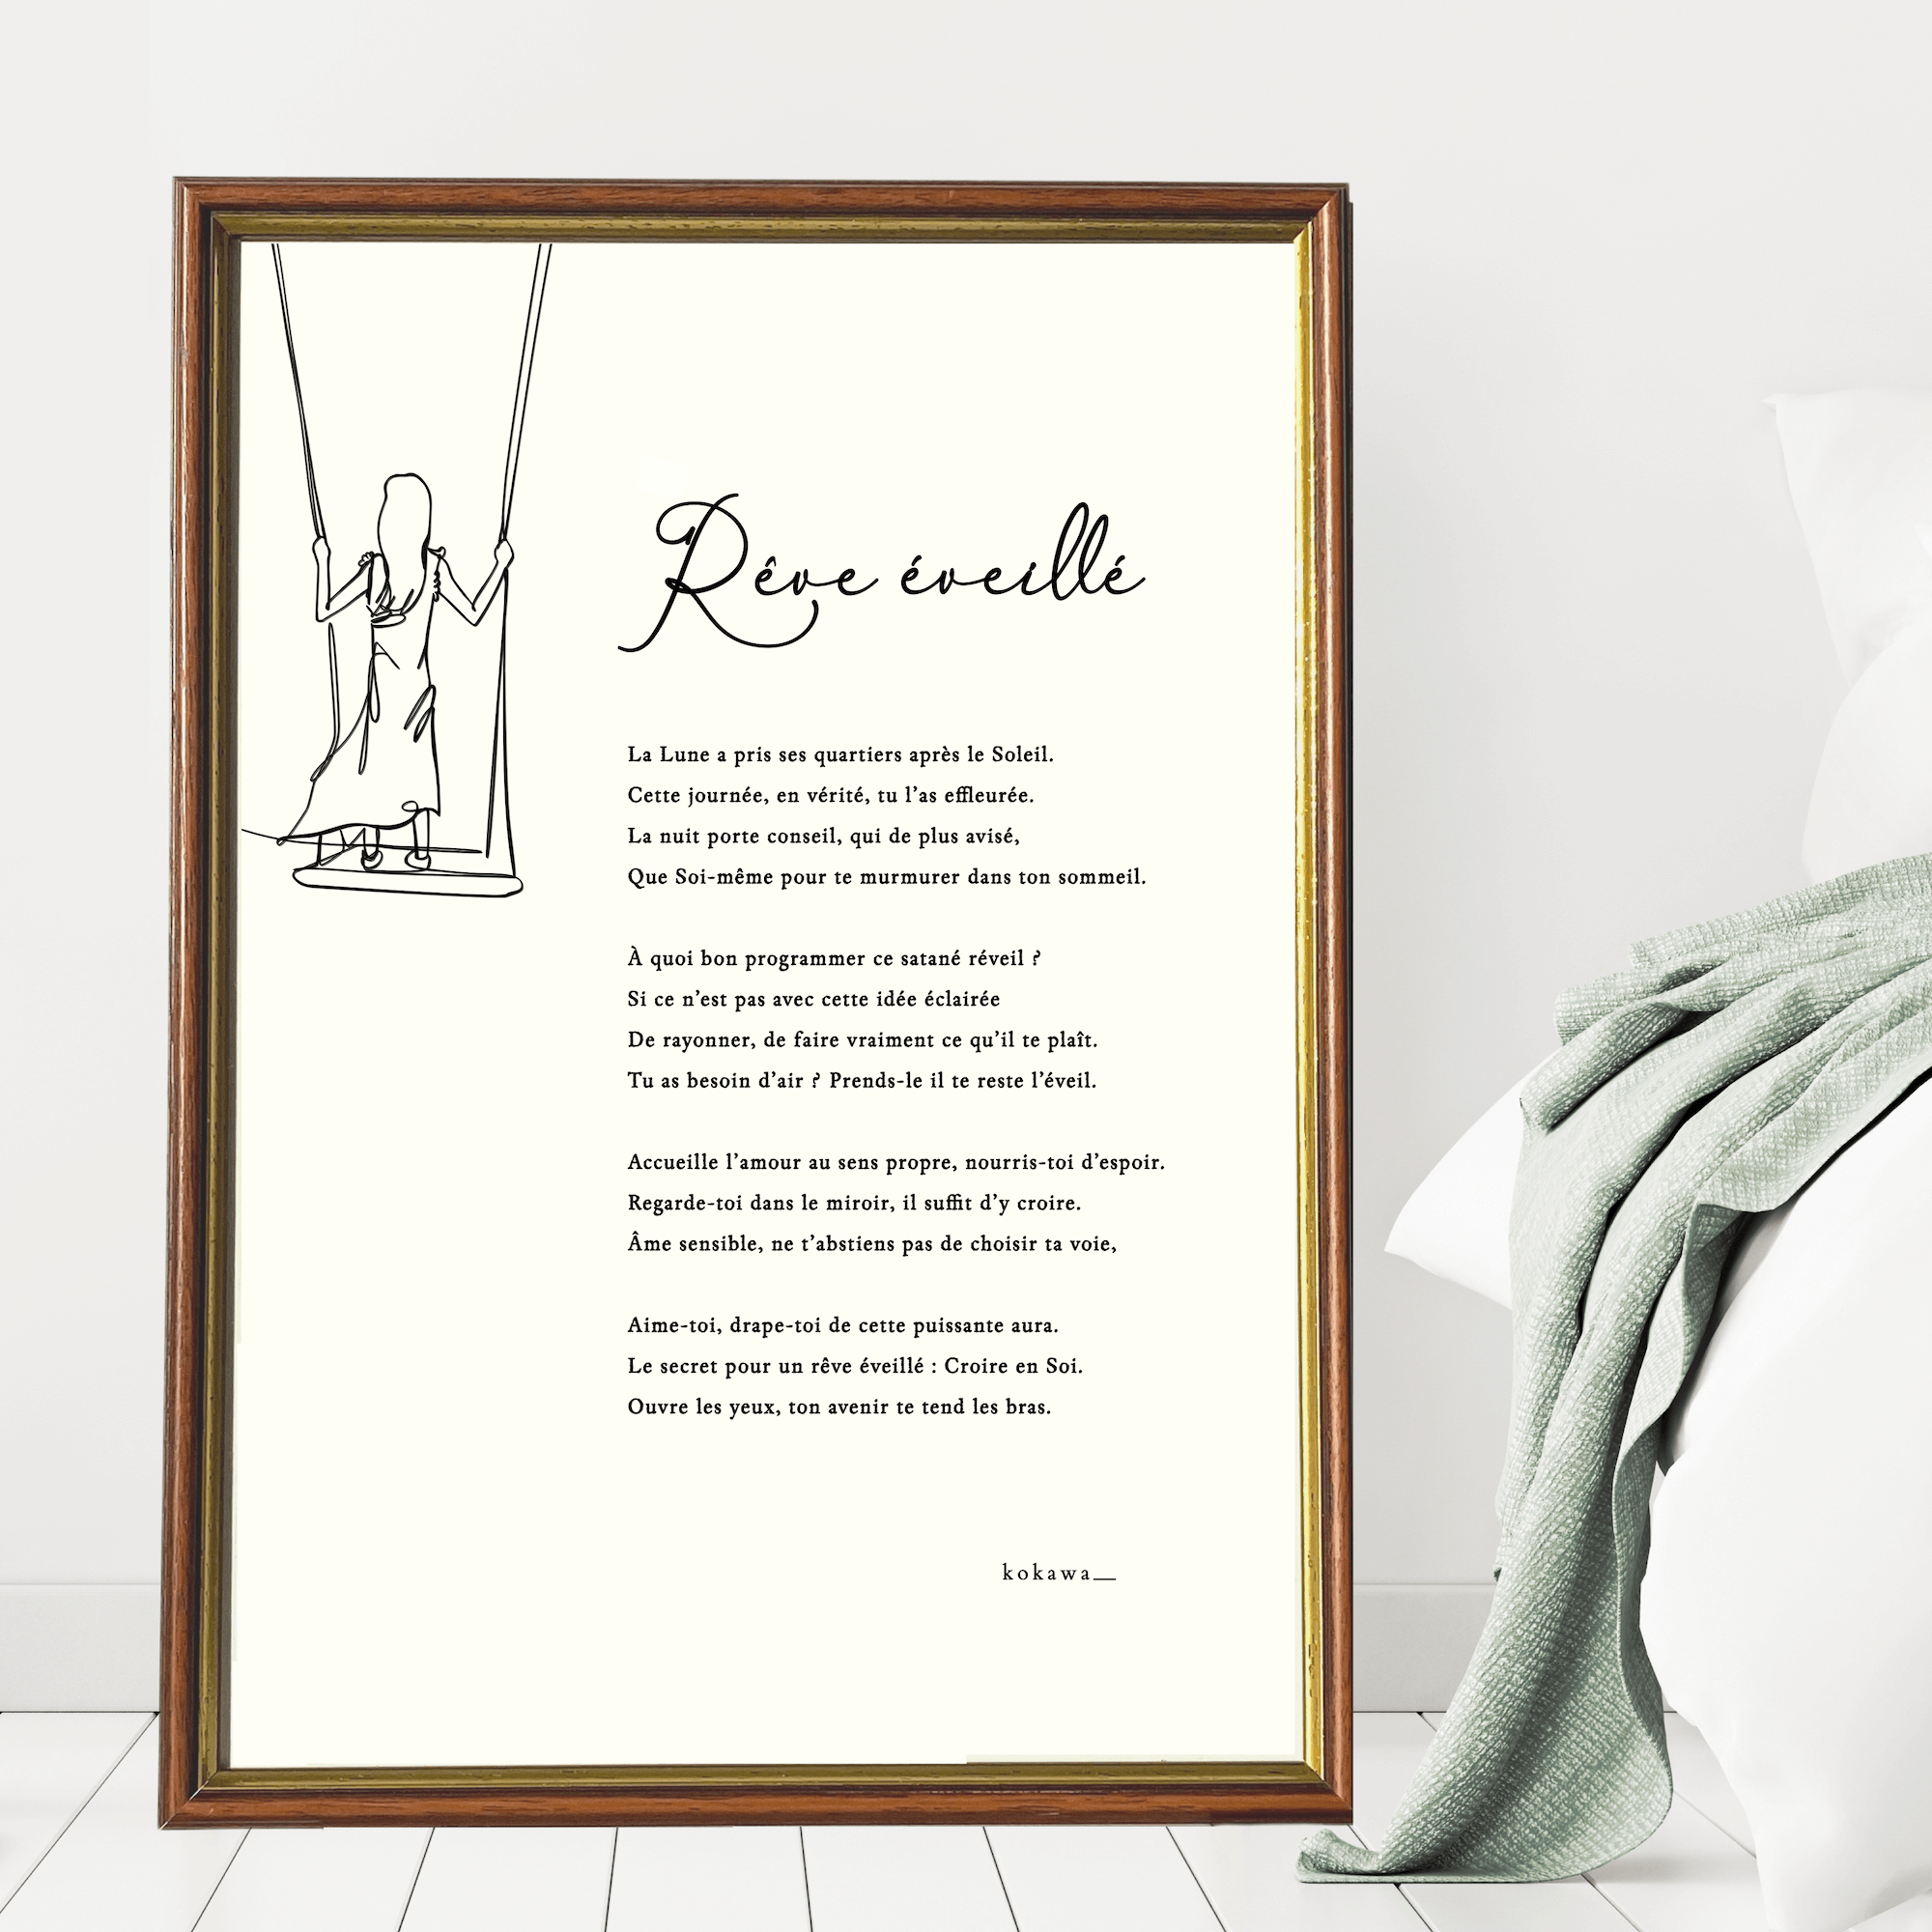 Rêve éveillé
La Lune a pris ses quartiers après le Soleil.
Cette journée, en vérité, tu l'as effleurée.
La nuit porte conseil, qui de plus avisé,
Que Soi-même pour te murmurer dans ton sommeil.
À quoi bon programmer ce satané réveil ?
Si ce n'est pas avec cette idée éclairée
De rayonner, de faire vraiment ce qu'il te plaît.
Tu as besoin d'air ? Prends-le il te reste l'éveil.
Accueille l'amour au sens propre, nourris-toi d'espoir.
Regarde-toi dans le miroir, il suffit d'y croire.
Âme sensible, ne t'abstiens pas de choisir ta voie,
Aime-toi, drape-toi de cette puissante aura.
Le secret pour un rêve éveillé : Croire en Soi.
Ouvre les yeux, ton avenir te tend les bras.
kokawa__